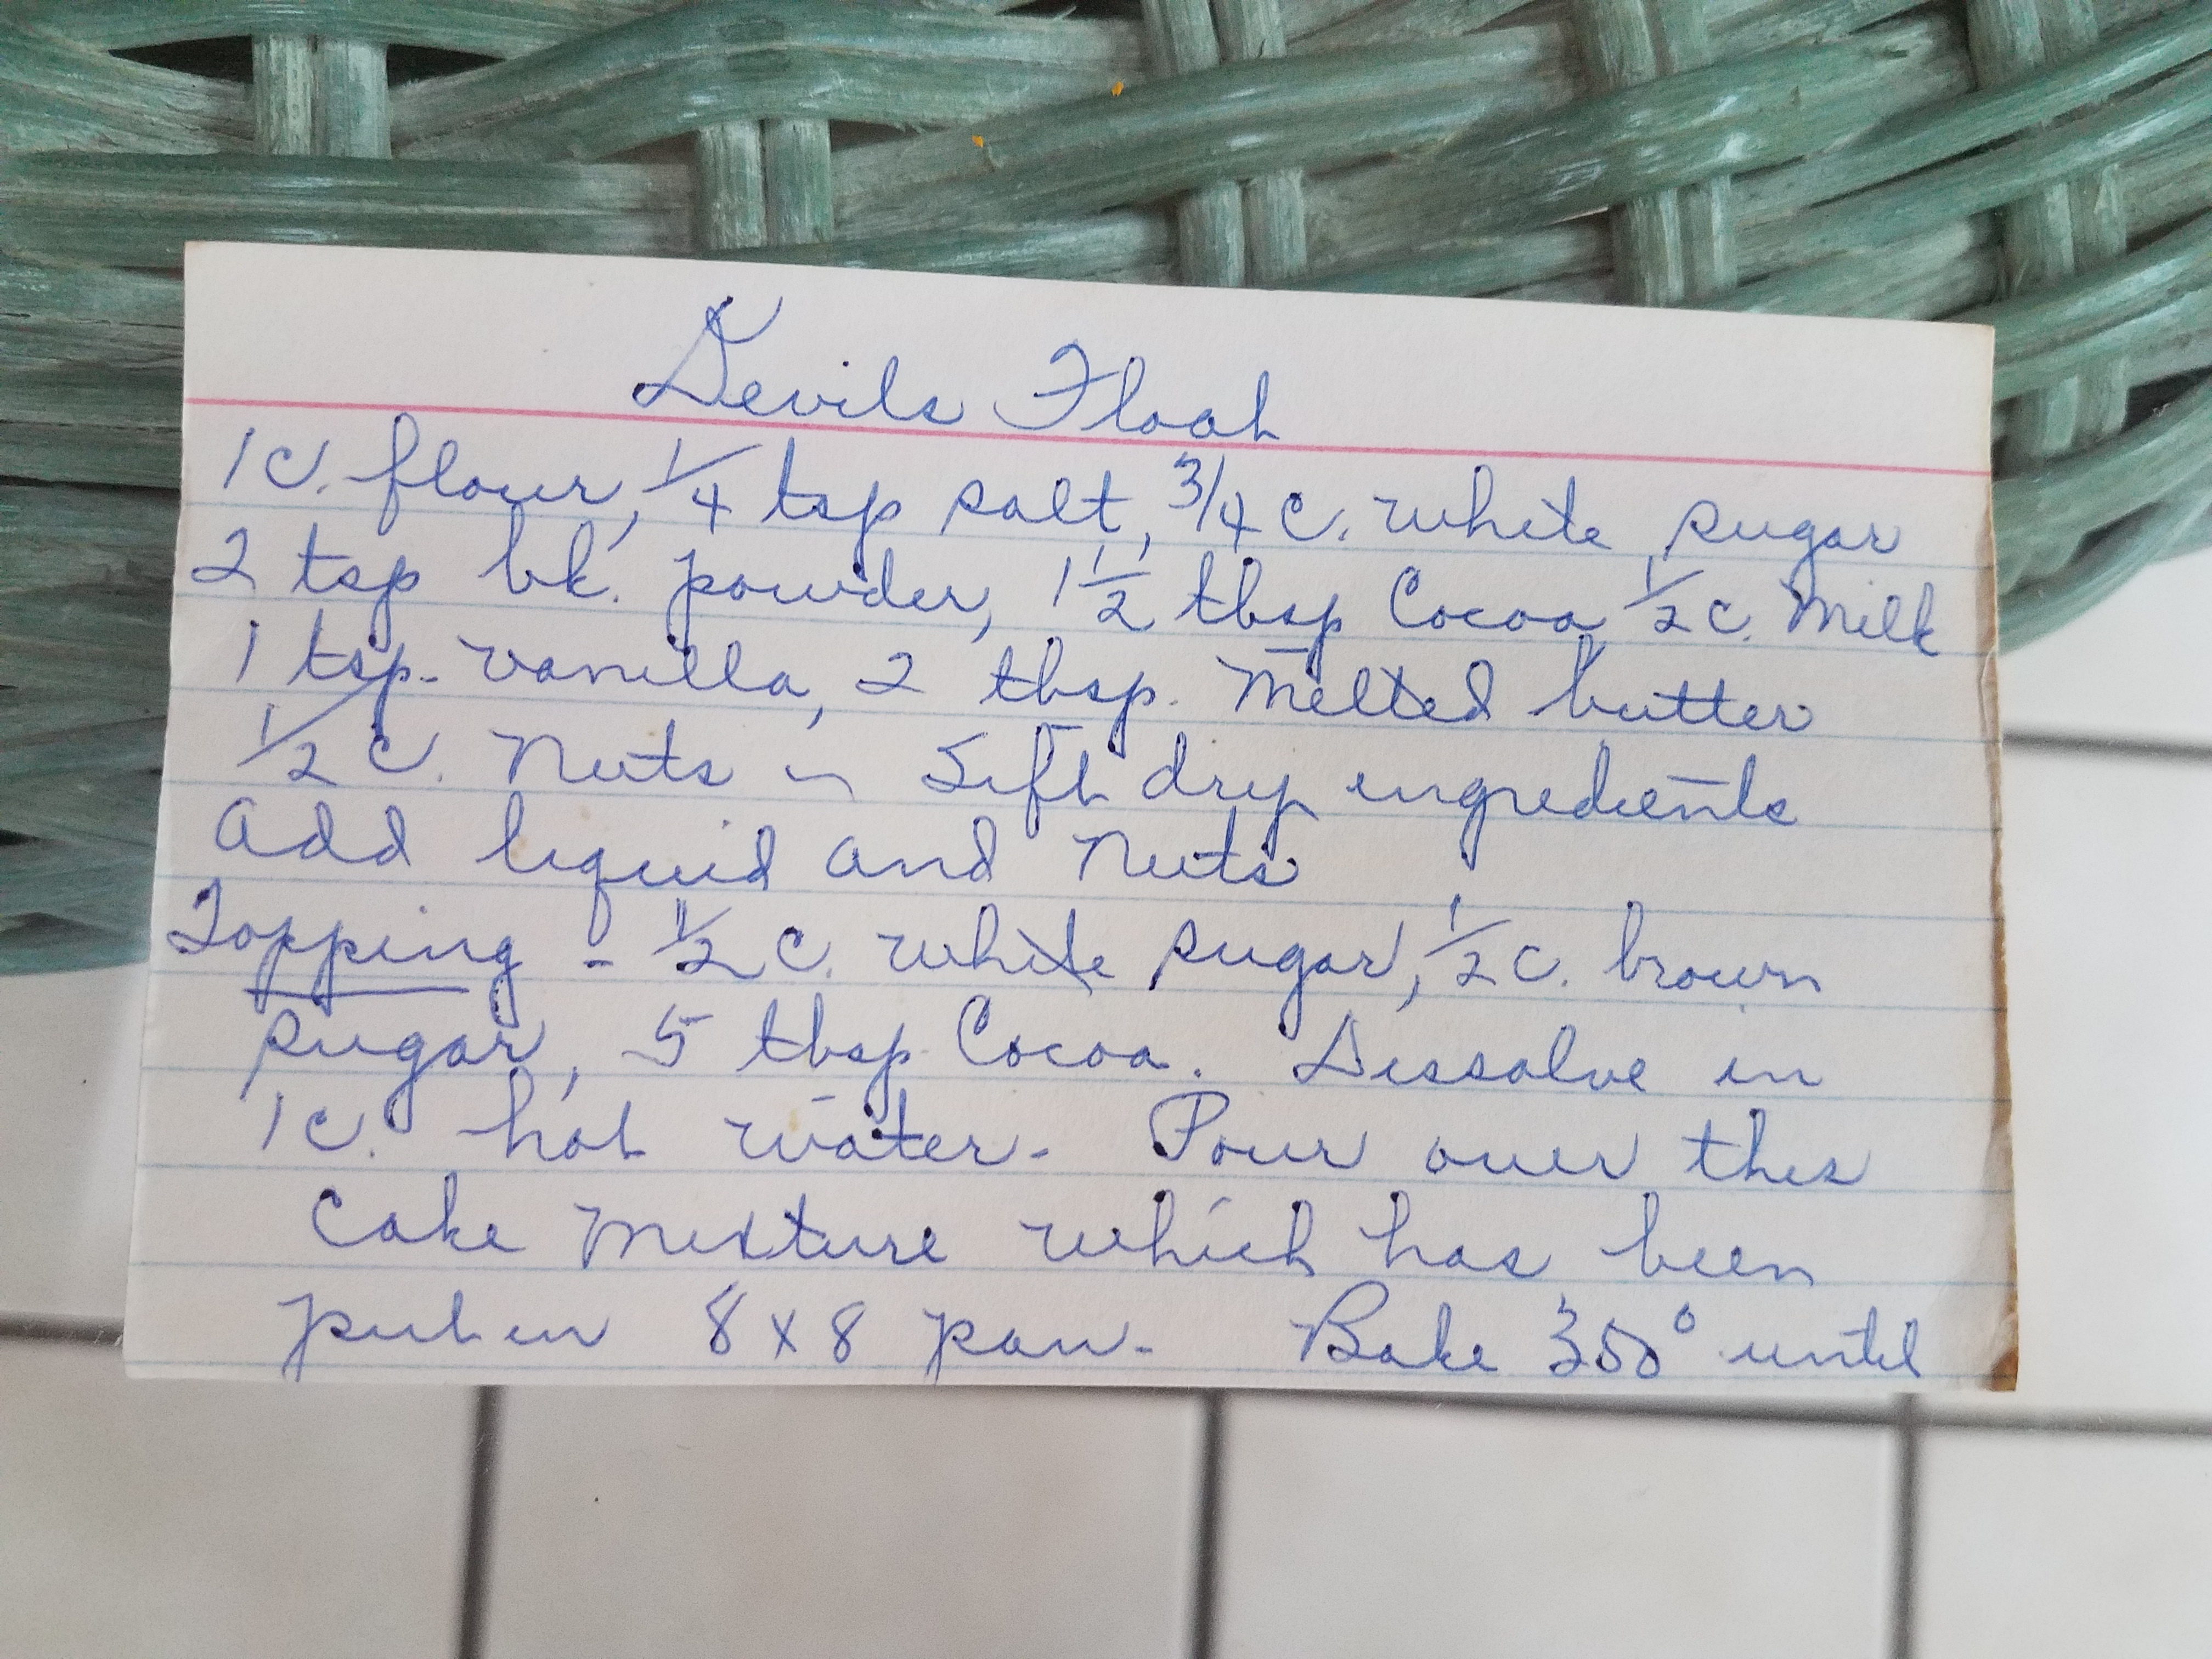 Devils Float
1 c. flour, 1/4 tsp salt, 3/4 c. white sugar
2 tsp bk. powder, 1 1/2 tbsp Cocoa, 1/2 c. Milk
1 tsp. vanilla, 2 tbsp. Melted butter
1/2 c. Nuts - Sift dry ingredients
Add liquid and Nuts
Topping - 1/2 c. white sugar, 1/2 c. brown
sugar, 5 tbsp Cocoa. Dissolve in
1 c. hot water. Pour over this
Cake Mixture which has been
put in 8 x 8 pan. Bake 350° until